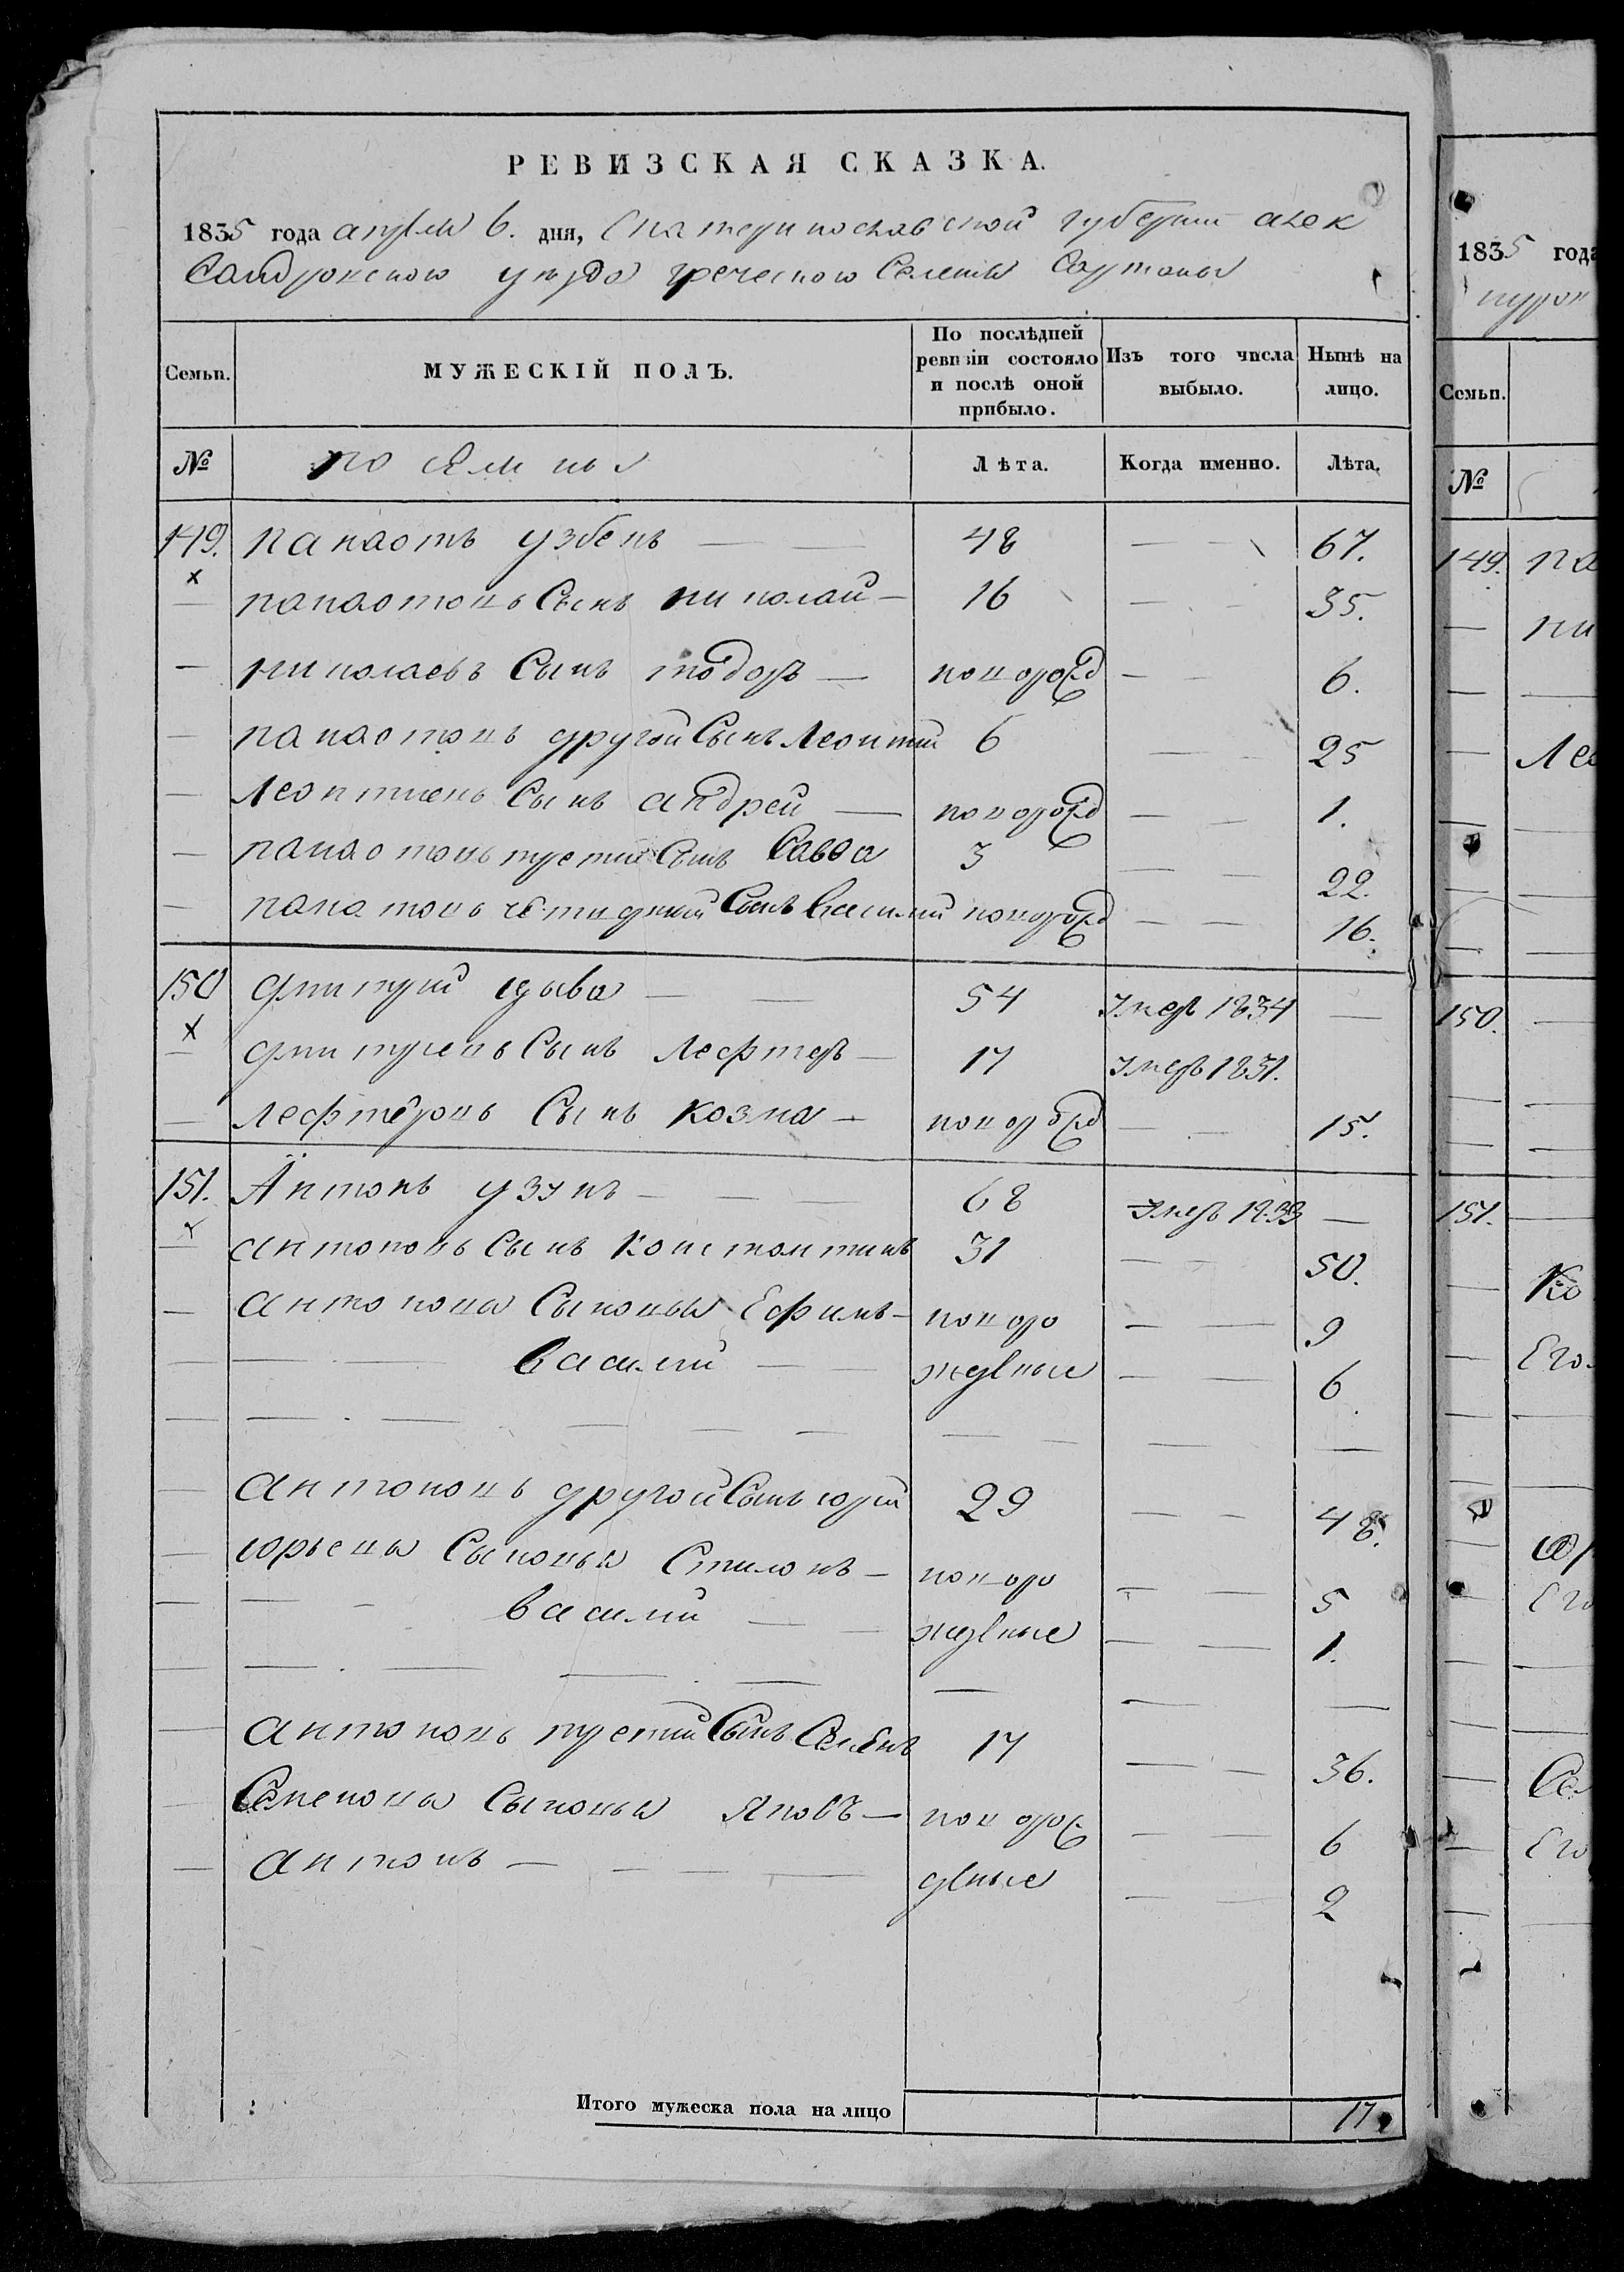 РЕВИЗСКАЯ СКАЗКА.
1835 года апреля 6. дня, Екатеринославской губернии алек
сандровского уезда греческого Селения Сартаны
Семьи. МУЖЕСКІЙ ПОЛЪ. По послѣдней ревизіи состояло и послѣ оной прибыло. Изъ того числа выбыло. Нынѣ на лицо.
№ Лѣта. Когда именно. Лѣта.
149. панаотъ узбекъ — — 48 — — 67.
х панаотовъ Сынъ николай — 16 — — 35.
— николаевъ Сынъ тодоръ — новорожд — — 6.
— панаотовъ другой Сынъ Леонтий 6 — — 25
— Леонтиевъ Сынъ андрей — новорожд — — 1.
— панаотовъ третий Сынъ Савва 3 — — 22.
— панаотовъ четвертый Сынъ василий новорожд — — 16.
150 дмитрий — — 54 умеръ 1834 —
х дмитриевъ Сынъ Лефтеръ — 17 умеръ 1831.
— Лефтеровъ Сынъ козма — новорожд — — 15.
151. Антонъ узунъ — — — 68 умеръ 1833 —
х антоновъ Сынъ константинъ 31 — — 50.
— антонова Сыновья Ефимъ — новоро — — 9
— — — василий — — жденые — — 6
— антоновъ другой Сынъ юрий 29 — — 48.
— юрьевы Сыновья Стилонъ — новоро — — 5
— — — василий — — жденые — — 1.
— антоновъ третий Сынъ Семенъ 17 — — 36.
Семенова Сыновья яковъ — новорож — — 6
— антонъ — — — — деные — — 2
Итого мужеска пола на лицо 17
1835 года
Семьи.
№
149. па
ни
Лео
150.
151.
Ко
Его
юр
Его
Сем
Его